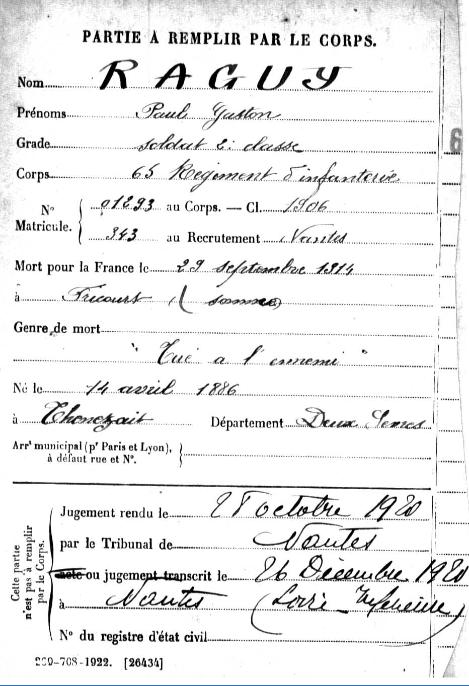 PARTIE À REMPLIR PAR LE CORPS.
Nom RAGUY
Prénoms Paul Gaston
Grade soldat 2e classe
Corps 65 Régiment d'infanterie
N° Matricule. 01293 au Corps. — Cl. 1906
343 au Recrutement Nantes
Mort pour la France le 29 septembre 1914
à Fricourt (somme)
Genre de mort
"Tué a l'ennemi"
Né le 14 avril 1886
à Thenezait Département Deux Sevres
Arrt municipal (pr Paris et Lyon),
à défaut rue et N°.
Cette partie n'est pas à remplir par le Corps.
Jugement rendu le octobre 1920
par le Tribunal de Nantes
acte ou jugement transcrit le 26 Décembre 1920
à Nantes (Loire Inferieure)
N° du registre d'état civil
-708-1922. [26434]
6